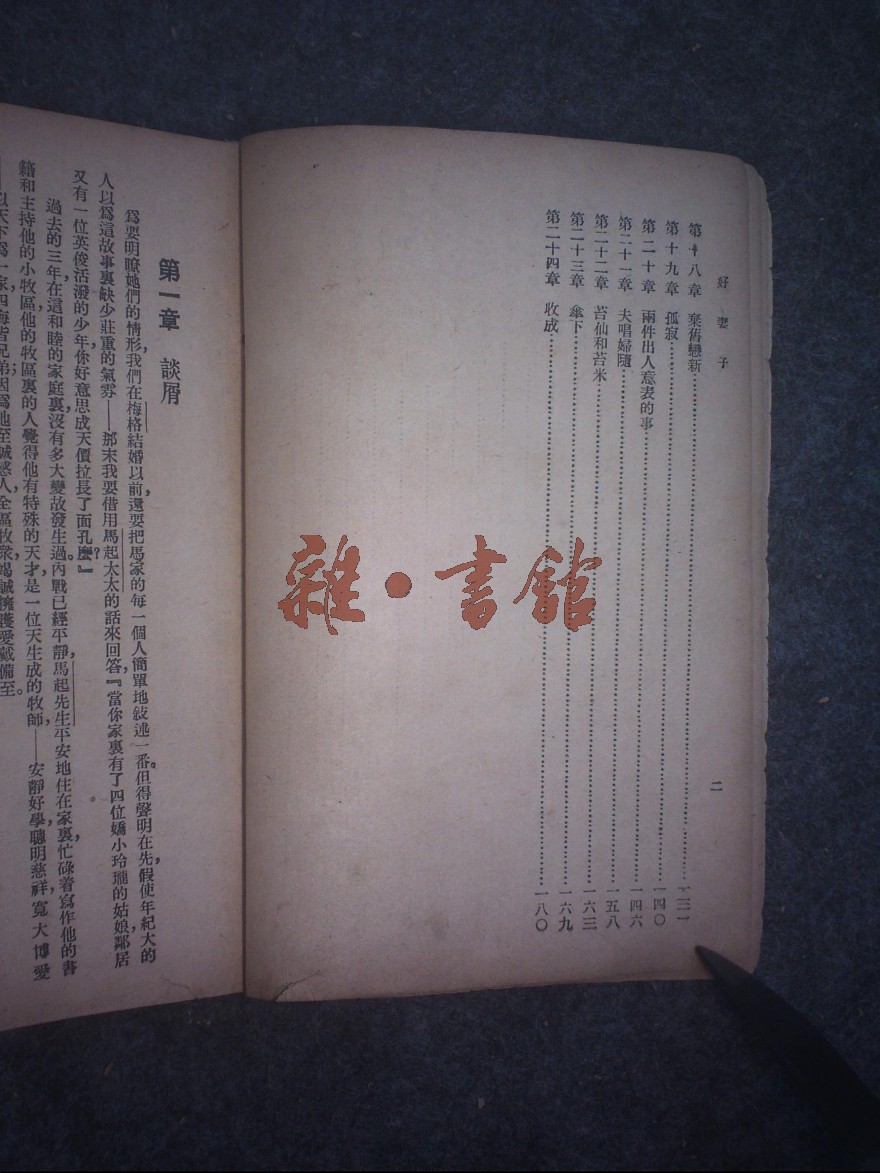 好妻子
二
第十八章 棄舊戀新……一三一
第十九章 孤寂……一四〇
第二十章 兩件出人意表的事……一四六
第二十一章 夫唱婦隨……一五八
第二十二章 苔仙和苔米……一六三
第二十三章 傘下……一六九
第二十四章 收成……一八〇
雜·書館
第一章 談屑
爲要明瞭她們的情形,我們在梅格結婚以前,還要把馬家的每一個人簡單地敍述一番。但得聲明在先,假使年紀大的
人以爲這故事裏缺少莊重的氣雰——那末我要借用馬起太太的話來回答,『當你家裏有了四位嬌小玲瓏的姑娘,鄰居
又有一位英俊活潑的少年,你好意思成天價拉長了面孔麼?』
過去的三年,在這和睦的家庭裏,沒有多大變故發生過。內戰已經平靜,馬起先生平安地住在家裏,忙碌着寫作他的書
籍和主持他的小牧區,他的牧區裏的人覺得他有特殊的天才,是一位天生成的牧師——安靜好學,聰明慈祥,寬大博愛
以天下爲一家,四海皆兄弟;因爲他至誠感人,全區牧衆,竭誠擁護,愛戴備至。